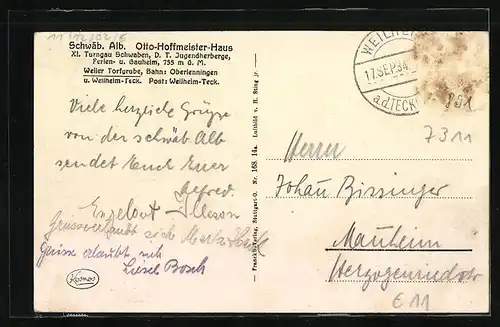 Schwäb. Alb. Otto-Hoffmeister-Haus
XI. Turngau Schwaben, D. T. Jugendherberge,
Ferien- u. Bauheim, 755 m ü. M.
Weiler Torfgrube, Bahn: Oberlenningen
u. Weilheim-Teck. Post: Weilheim-Teck.
Viele herzliche Grüsse
von der schwäb Alb
sendet Euch Euer
Alfred.
Grüsse erlaubt sich
Liesel Bosch
Kosmos
Franckh-Verlag, Stuttgart-O. Nr. 168 14a. Luftbild v. H. Sting jr.
WEILHEIM
17.SEP.34.
a.d.TECK
891
7311
Herrn
Johann Bissinger
Mannheim
Herzogenriedstr
€11